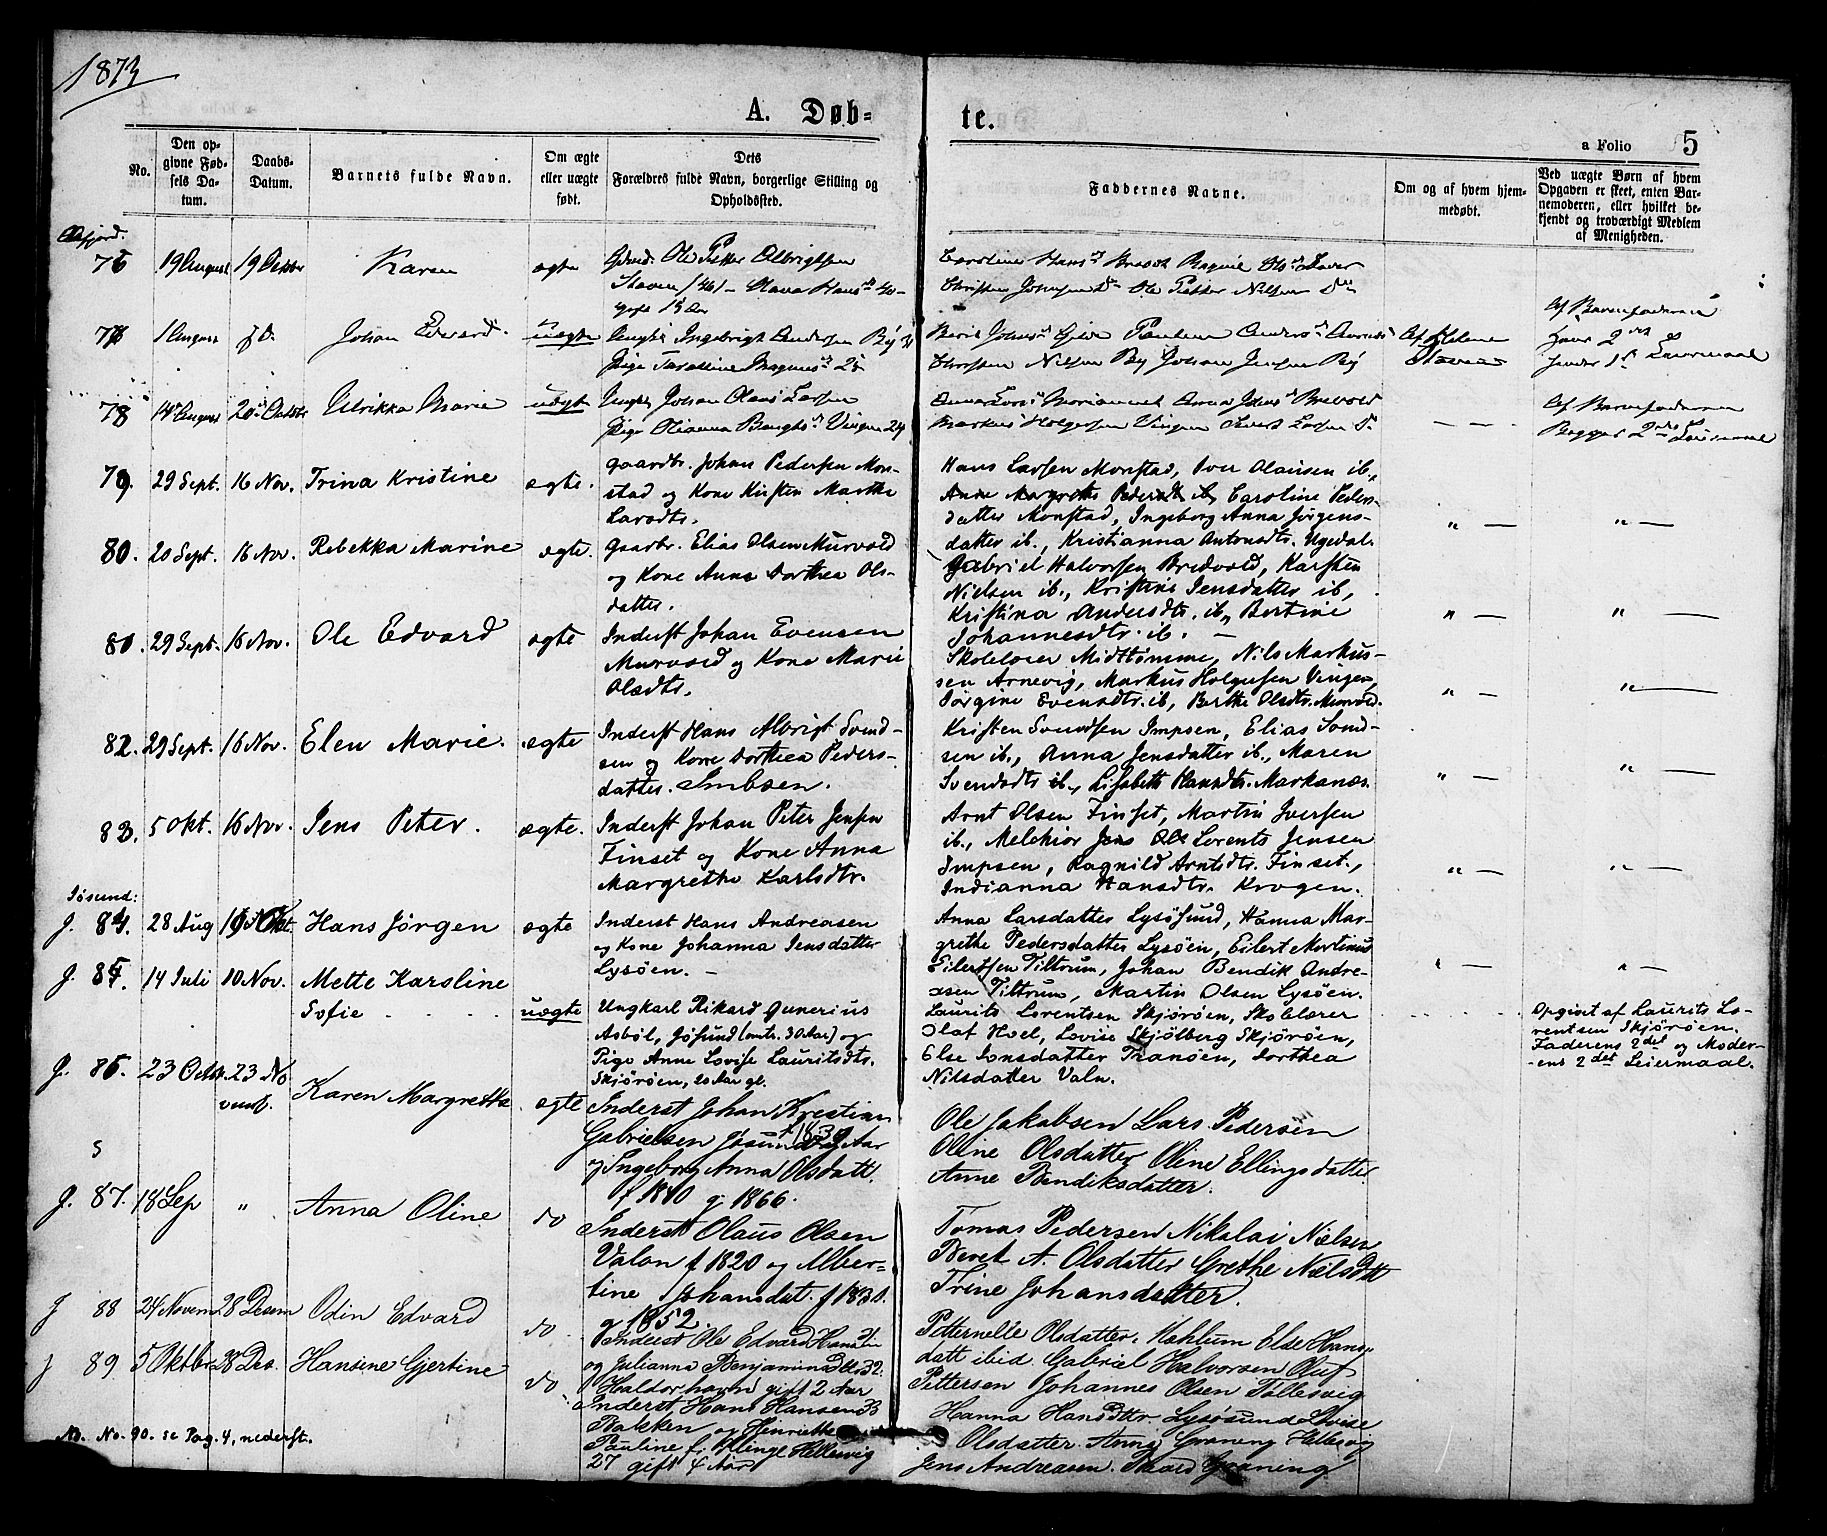 1873
A. Døb-
te.
a Folio 5
No.
Den op-
givne Fød-
sels Da-
tum.
Daabs-
Datum.
Barnets fulde Navn.
Om ægte
eller uægte
født.
Dets
Forældres fulde Navn, borgerlige Stilling og
Opholdssted.
Faddernes Navne.
Om og af hvem hjem-
medøbt.
Ved uægte Børn af hvem
Opgaven er skeet, enten Bar-
nemoderen, eller hvilket be-
kjendt og troværdigt Medlem
af Menigheden.
76 19 August 19 Octbr Karen ægte
Ole Petter Albrigtsen
77 1 August Johan Edvard. uægte
Ungk Ingebrigt Andersen By
Pige
Christen Nilsen By Johan Jensen By
Af Barnefaderen
78 14 August 20 Octbr Ulrikka Marie uægt
Ungk Johan Olaus Larsen
Pige Olianna Bengts Vingen 24
Markus Holgersen Vingen Sivert Larsen
— — —
Af Barnefaderen
Begges 2 Leiermaal
79. 29 Sept. 16 Nov. Trina Kristine ægte.
Gaardbr. Johan Pedersen Mon-
stad og Kone Kirsten Marthe
Larsdtr.
Hans Larsen Monstad, Iver Olausen ib.,
Anne Margrethe Pedersdt ib, Caroline Peders-
datter Monstad, Ingeborg Anna Jørgens-
datter ib., Kristianna Antonsdtr. Ugedal.
" —
" —
80. 20 Sept. 16 Nov. Rebekka Marine ægte.
Gaarbr. Elias Olsen Murvold
og Kone Anne Dorthea Ols-
datter.
Gabriel Halvorsen Bredvold, Karsten
Nielsen ib., Kristine Jensdatter ib,
Kristina Andersdtr. ib, Bertine
Johannesdtr. ib. —
" —
" —
81. 29 Sept. 16 Nov. Ole Edvard ægte
Inderst Johan Evensen
Murvold og Kone Marie
Olsdtr.
Skolelærer Midttømme, Nils Markus-
sen Arnevig, Markus Holgersen Vingen,
Jørgine Evensdtr. ib, Berthe Olsdtr. Murvold.
" —
" —
82. 29 Sept. 16 Nov. Elen Marie. ægte
Inderst Hans Albrigt Svend-
sen og Kone Dorthea Peders-
datter. Imbsen.
Kristen Svendsen Impsen, Elias Svend-
sen ib., Anna Jensdatter ib., Maren
Svendsdtr ib., Lisabeth Hansdtr. Markanæs.
" —
" —
83. 5 Okt. 16 Nov. Jens Peter. ægte.
Inderst Johan Peter Jensen
Finset og Kone Anna
Margrethe Karlsdtr.
Arnt Olsen Finset, Martin Iversen
ib., Melchior Jens Ole Lorents Jensen
Impsen, Ragnild Arntsdtr. Finset.,
Indianna Hansdtr. Krogen.
" —
" —
Jøsund:
J. 84. 28 Aug Hans Jørgen ægte
Inderst Hans Andreasen
og Kone Johanna Jensdatter
Lysøen. —
Anna Larsdatter Lysøsund, Hanna Mar-
grethe Pedersdatter Lysøen, Eilert Mortinus
Eilertsen Tiltrum, Johan Bendik Andre-
asen Tiltrum, Martin Olsen Lysøen.
" —
" —
J. 85. 14 Juli 10 Nov. Mette Karoline
Sofie . . . . uægte
Ungkarl Rikard Gunerius
Asbøl, Jøsund (omtr. 30 Aar) og
Pige Anne Lovise Lauritsdtr.
Skjørøen, 20 Aar gl.
Laurits Lorentsen Skjørøen, Skolelærer
Olaf Hoel, Lovise Skjølberg Skjørøen,
Else Jonsdatter Tranøen, Dorthea
Nilsdatter Valn.
Opgivet af Laurits Lo-
rentsen Skjørøen.
Faderens 2det og Moder-
ens 2det Leiermaal.
J. 86. 23 Octob. 23 No
vemb. Karen Margrethe. ægte
Inderst Johan Kristian
Gabrielsen Jøsund
og Ingeborg Anna Olsdatt.
f 1840 g. 1866.
Ole Jakobsen Lars Pedersen
Oline Olsdatter Oline Ellingsdatter
Anne Bendiksdatter.
J. 87. 18 Sep " Anna Oline do
Inderst Olaus Olsen
Valan f 1820 og Alber-
tine Johansdat. f 1830.
g 1852.
Tomas Pedersen Nikolai Nielsen
Beret A. Olsdatter Grethe Nielsdtt
Trine Johansdatter.
J 88 24 Novem 28 Desem Odin Edvard do
Inderst Ole Edvard Hansen 31
og Julianna Benjaminsdtr 32.
Haldorhavn gift 2 Aar
Petternelle Olsdatter. Vahlum Else Hans-
datt ibid. Gabriel Halvorsen Oluf
Pettersen Johannes Olsen Tallesvig
J 89 5 Oktbr 28 Des. Hansine Gjertine do.
Inderst Hans Hansen 33
Bakken og Henriette
Pauline f. Klinge Hellesvig
27 gift 4 Aar
Hanna Hansdtr. Lysøsund Lovise
Olsdatter. Anne Graning Hellesvig
Jens Andreasen. Baard Graning
Nb. No. 90. se Pag. 4, nederst.